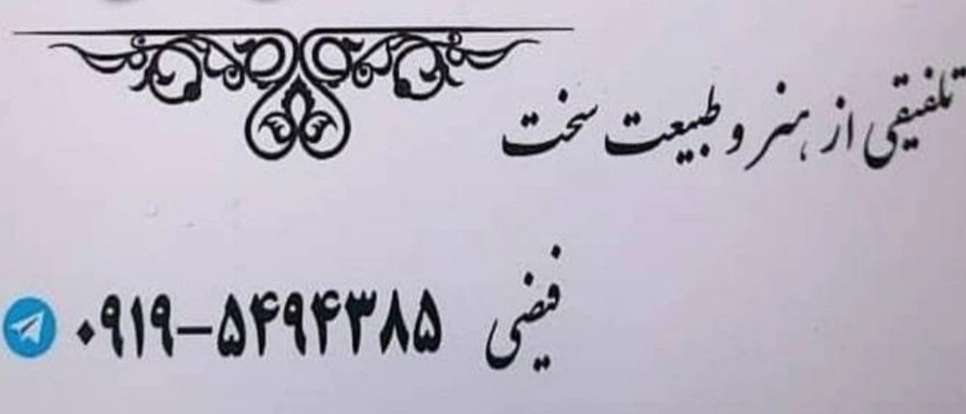 تلفیقی از هنر و طبیعت سخت
فیضی ۰۹۱۹-۵۴۹۴۳۸۵